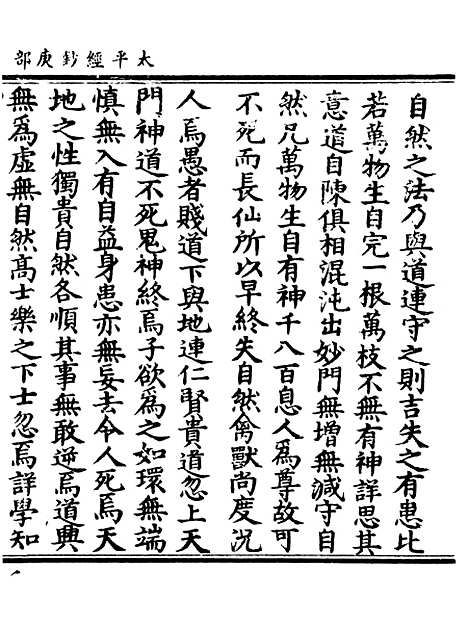 太平經鈔庚部
自然之法乃與道連守之則吉失之有患比
若萬物生自完一根萬枝不無有神詳思其
意道自陳俱相混沌出妙門無增無減守自
然凡萬物生自有神千八百息人為尊故可
不死而長仙所以早終失自然禽獸尚度況
人焉愚者賤道下與地連仁賢貴道忽上天
門神道不死鬼神終焉子欲為之如環無端
慎無入有自益身患亦無妄去令人死焉天
地之性獨貴自然各順其事無敢逆焉道興
無為虛無自然高士樂之下士忽焉詳學知